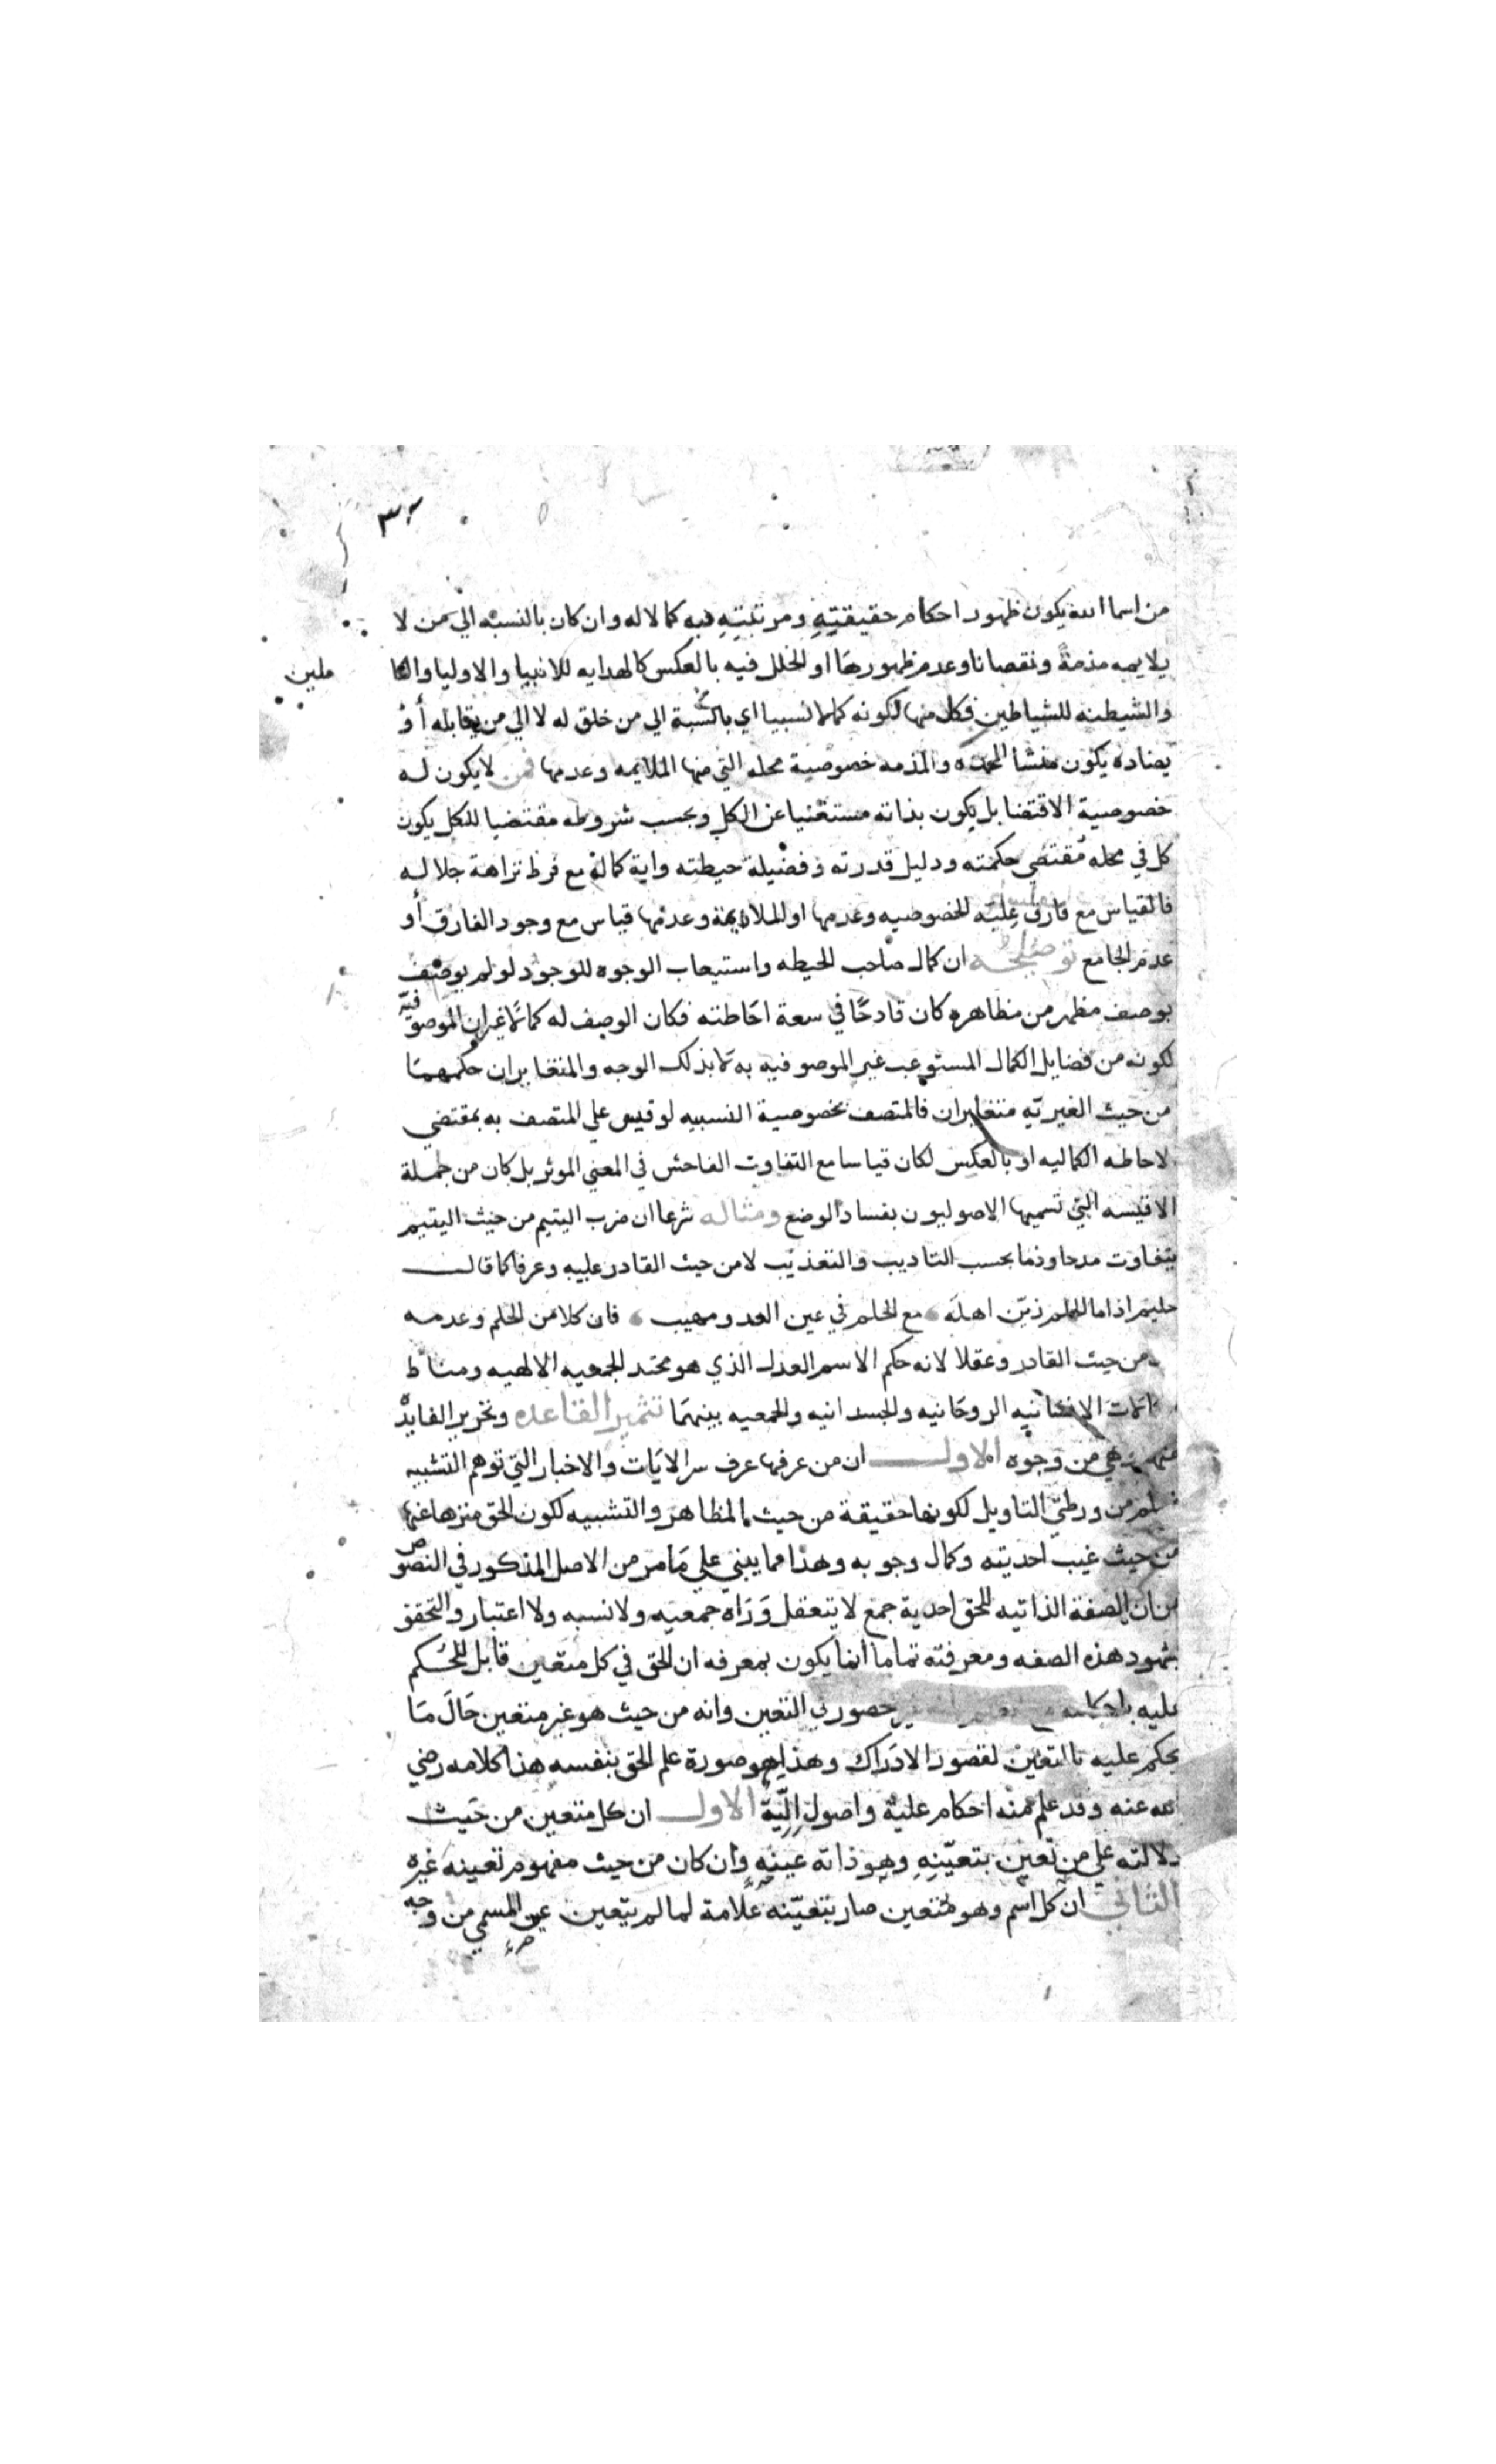 ٣٢
من اسما الله يكون ظهور احكام حقيقتِهِ ومرتبتِهِ فيه كمالا له وان كان بالنسبه الي من لا
يلايمه مذمةً ونقصانا وعدم ظهورها او الخلل فيه بالعكس كالهدايه للانبيا والاوليا والكا
ملين
والشيطنه للشياطين فكل منها لكونه كمالا نسبيا اي بالنسبة الي من خلق له لا الي من يقابله أو
يضاده يكون منشا المحمده والمذمه خصوصية محله التي منها الملايمه وعدمها فمن لا يكون له
خصوصية الاقتضا بل يكون بذاته مستغنيا عن الكل وبحسب شروطه مقتضيا للكل يكون
كل في محله مُقتضي حكمته ودليل قدرته وفضيلة حيطته واية كماله مع فرط نزاهة جلاله
فالقياس مع فارق عِليّه الخصوصيه وعدمها او الملايمة وعدمها قياس مع وجود الفارق أو
عدم الجامع توضيحه ان كمال صاحب الحيطه واستيعاب الوجوه للوجود لو لم يوصف
بوصف مظهر من مظاهره كان قادحًا في سعة احَاطته فكان الوصف له كمالا غير ان الموصوفيّه
لكونه من فضايل الكمال المستوعب غير الموصوفيه به لا بذلك الوجه والمتغايران حكمهمَا
من حيث الغيريّه متغايران فالمتصف بخصوصية النسبيه لو قيس علي المتصف به بمقتضي
لاحاطه الكماليه او بالعكس لكان قياسا مع التفاوت الفاحش في المعني الموثر بل كان من جملة
الاقيسه التي تسميها الاصوليون بفساد الوضع ومثاله شرعا ان ضرب اليتيم من حيث اليتيم
يتفاوت مدحا وذما بحسب التاديب والتعذيب لا من حيث القادر عليه وعرفا كما قال
حليم اذا ما الحلم زيّن اهلَه مع الحلم في عين العدو مهيب فان كلا من الحلم وعدمه
من حيث القادر وعقلا لانه حكم الاسم العدل الذي هو محتد الجمعيه الالهيه ومناط
الروحَانيه والجسدانيه والجمعيه بينهمَا تثمير القاعده وتحرير الفايده
منها وهي من وجوه الاول ان من عرفها عرف سر الايَات والاخبار التي توهم التشبيه
سلم من ورطتي التاويل لكونها حقيقة من حيث المظاهر والتشبيه لكون الحق منزها عنها
من حيث غيب احديته وكمال وجوبه وهذا مما يبتني علي مَا مر من الاصل المذكور في النصوص
من ان الصفة الذاتيه للحق احدية جمع لا يتعقل وَرَاه جمعيه ولا نسبه ولا اعتبار والتحقق
بشهود هذه الصفه ومعرفته تماما انما يكون بمعرفه ان الحق في كل متعين قابل للحُكم
عليه بأحكامه حصور في التعين وانه من حيث هو غير متعين حَالَ مَا
يحكم عليه باالتعين لقصور الادَراك وهذا هو صورة علم الحق بنفسه هذا كلامه رضي
الله عنه وقد علم منه احكام عليّة واصول إِلّيةُ الاول ان كل متعين من حَيث
دلالته علي من تَعين بتعيّنِهِ وهو ذاته عينهِ وان كان من حيث مفهوم تعينه غيره
الثاني ان كل اسم وهو متعين صار بتعيّنه علامة لما لم يتعين عين المسمي من وجه